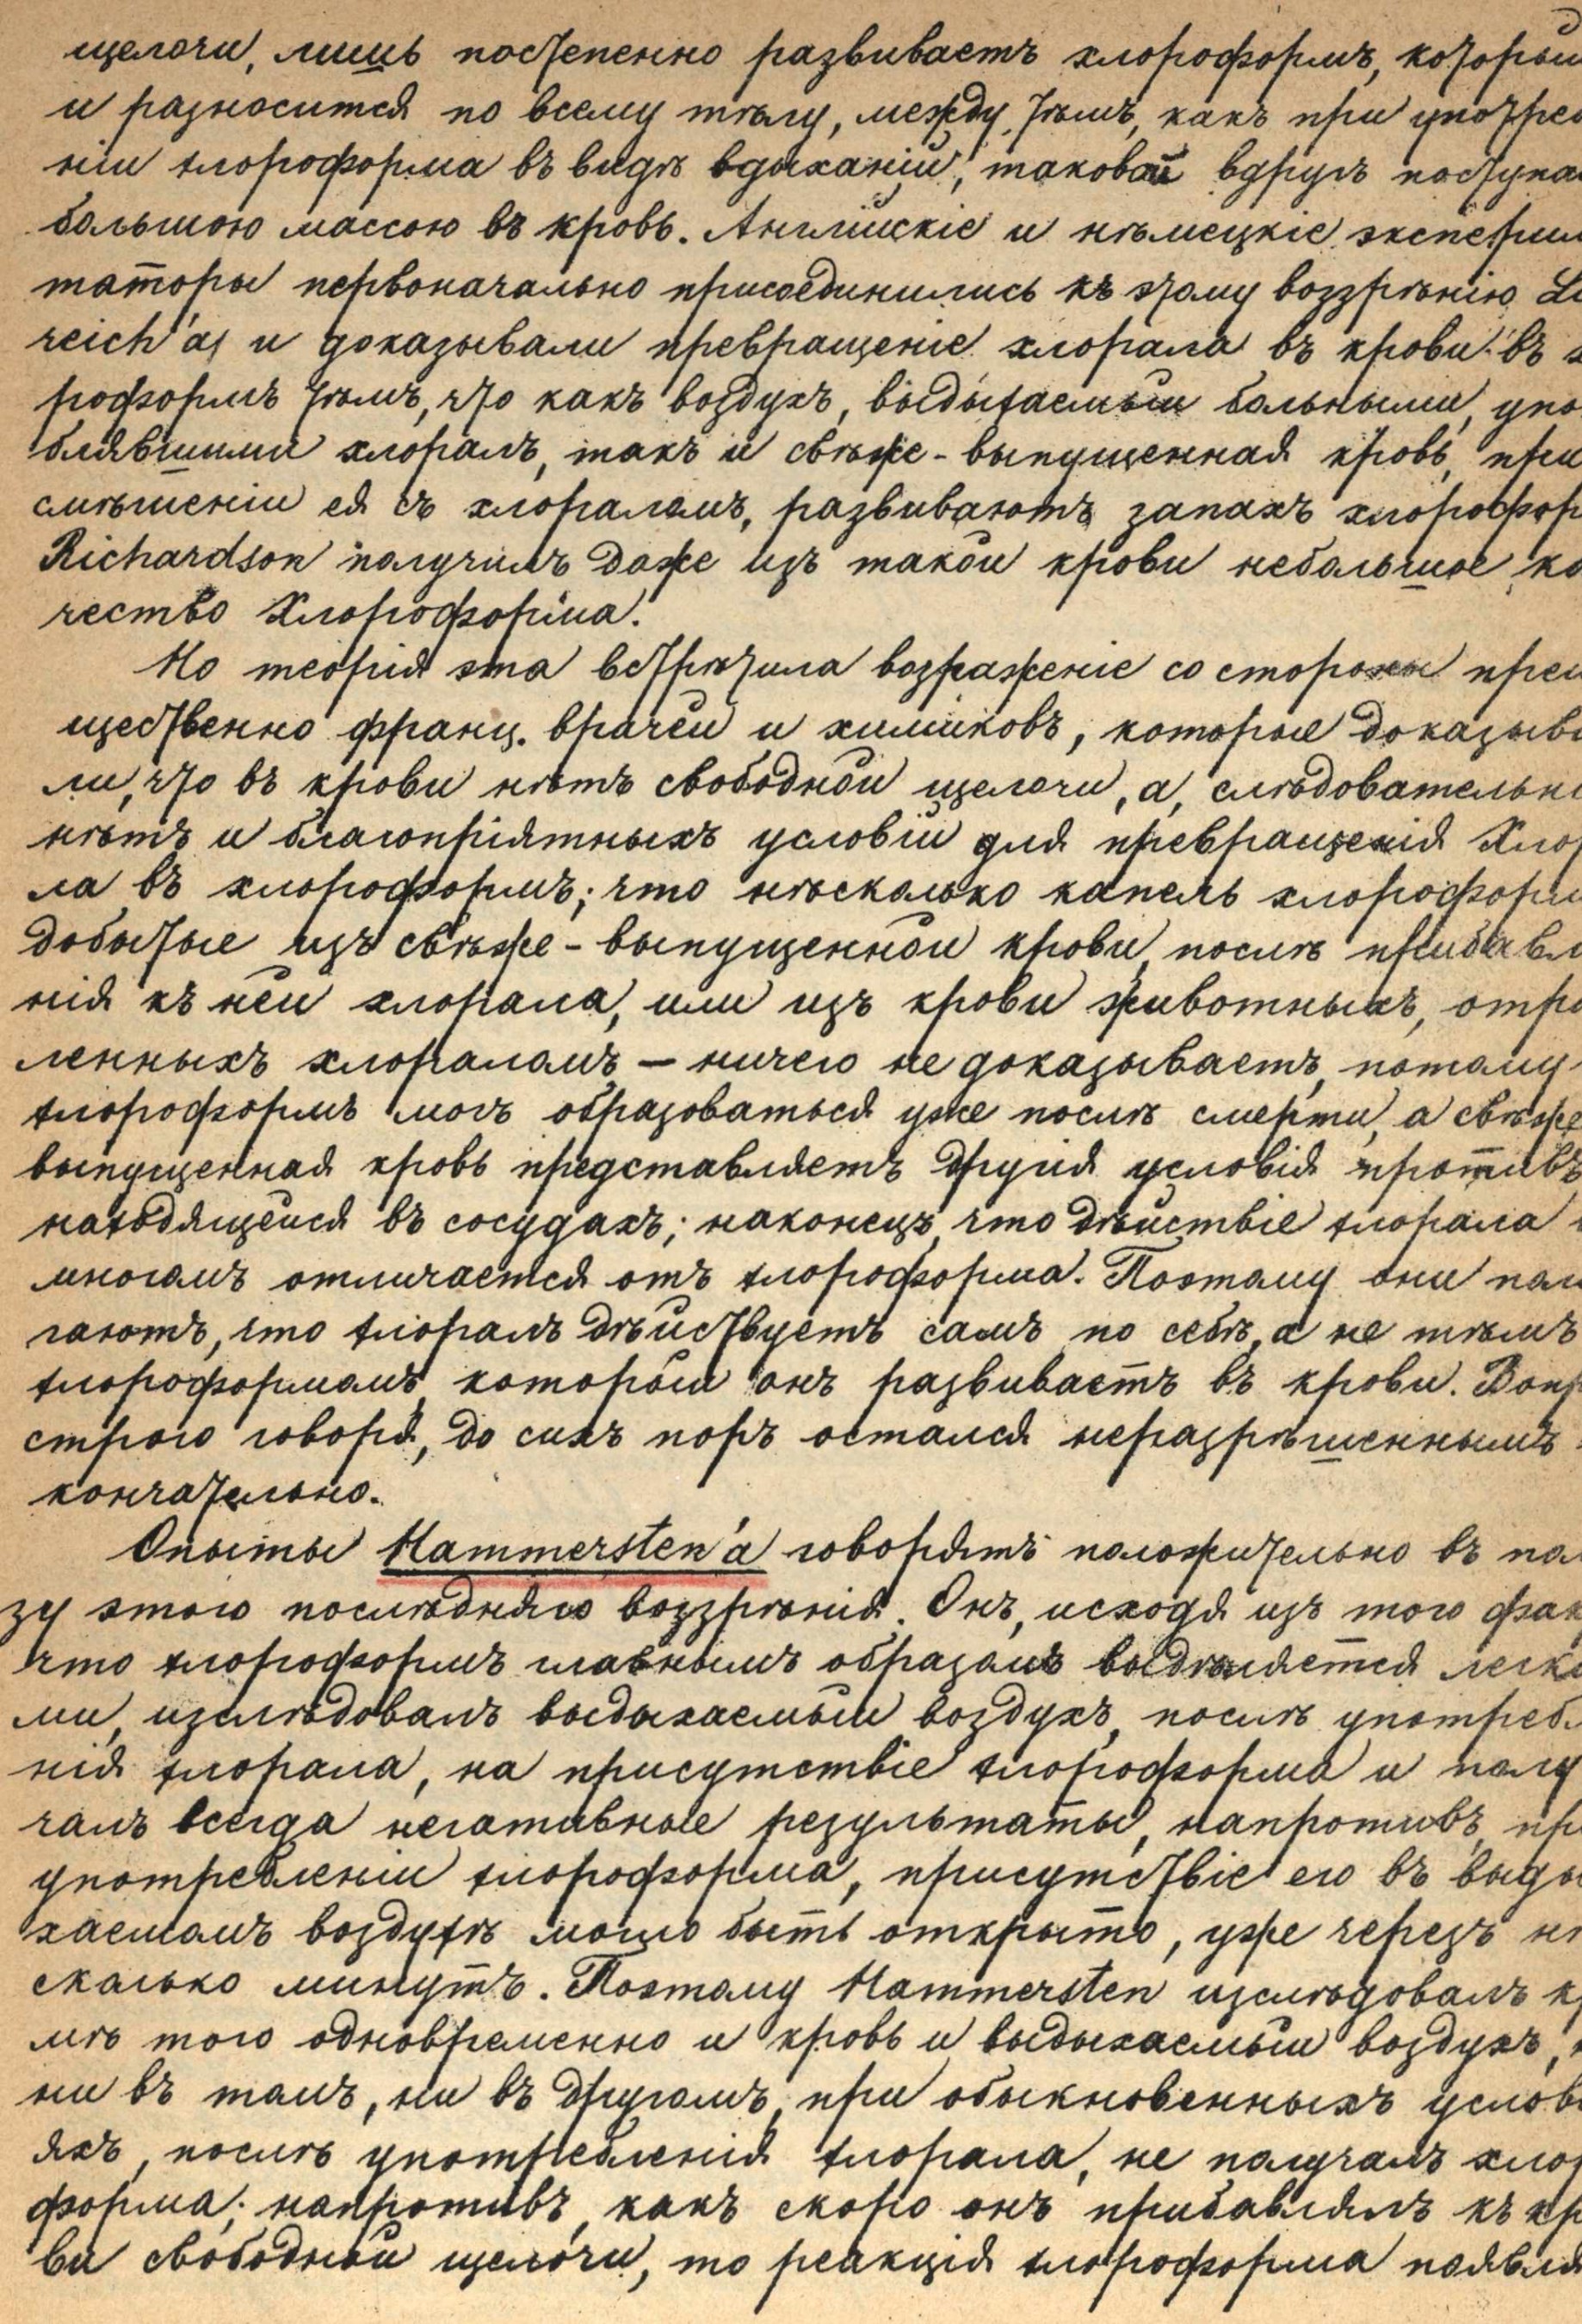 щелочи, лишь постепенно развиваетъ хлороформъ, которы
и разносится по всему тѣлу, между тѣмъ, какъ при употре
ніи хлороформа въ видѣ вдыханій, таковой вдругъ поступа
большою массою въ кровь. Англійскіе и нѣмецкіе экспери
таторы первоначально присоединились къ этому воззрѣнію Li
reich'a и доказывали превращеніе хлорала въ крови въ х
роформъ тѣмъ, что какъ воздухъ, выдыхаемый больными, упо
блявшими хлоралъ, такъ и свѣже-выпущенная кровь, при
смѣшеніи ея съ хлораломъ, развиваютъ запахъ хлорофор
Richardson получилъ даже изъ такой крови небольшое ко
чество хлороформа.
Но теорія эта встрѣтила возраженіе со стороны преи
щественно франц. врачей и химиковъ, которые доказыва
ли, что въ крови нѣтъ свободной щелочи, а, слѣдовательн
нѣтъ и благопріятныхъ условій для превращенія хлор
ла въ хлороформъ; что нѣсколько капель хлороформ
добытые изъ свѣже-выпущенной крови, послѣ прибавл
нія къ ней хлорала, или изъ крови животныхъ, отра
ленныхъ хлораломъ — ничего не доказываетъ, потому
хлороформъ могъ образоваться уже послѣ смерти, а свѣже
выпущенная кровь представляетъ другія условія противъ
находящейся въ сосудахъ; наконецъ, что дѣйствіе хлорала
многомъ отличается отъ хлороформа. Поэтому они пола
гаютъ, что хлоралъ дѣйствуетъ самъ по себѣ, а не тѣмъ
хлороформомъ, который онъ развиваетъ въ крови. Вопр
строго говоря, до сихъ поръ остался неразрѣшеннымъ
кончательно.
Опыты Hammersten'a говорятъ положительно въ пол
зу этого послѣдняго воззрѣнія. Онъ, исходя изъ того фак
что хлороформъ главнымъ образомъ выдѣляется легки
ми, изслѣдовалъ выдыхаемый воздухъ, послѣ употреб
нія хлорала, на присутствіе хлороформа и полу
чалъ всегда негативные результаты, напротивъ, пр
употребленіи хлороформа, присутствіе его въ выды
хаемомъ воздухѣ могло быть открыто, уже черезъ нѣ
сколько минутъ. Поэтому Hammersten изслѣдовалъ кр
мѣ того одновременно и кровь и выдыхаемый воздухъ,
ни въ томъ, ни въ другомъ, при обыкновенныхъ услові
яхъ, послѣ употребленія хлорала, не получалъ хлор
форма; напротивъ, какъ скоро онъ прибавлялъ къ кр
ви свободной щелочи, то реакція хлороформа появля